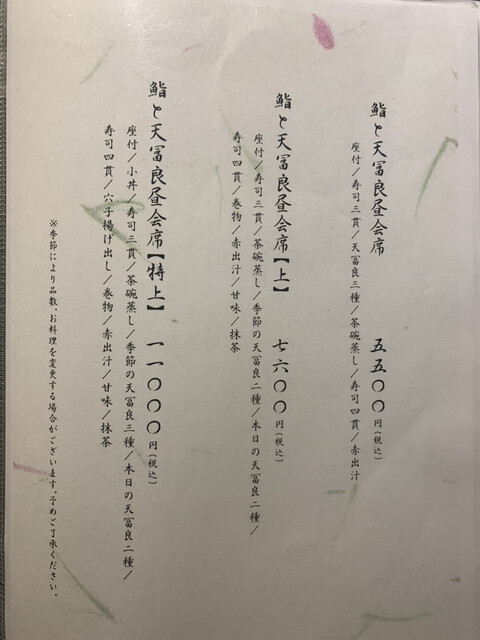 鮨と天冨良昼会席 五五〇〇円(税込)
座付/寿司三貫/天冨良三種/茶碗蒸し/寿司四貫/赤出汁
鮨と天冨良昼会席【上】 七六〇〇円(税込)
座付/寿司三貫/茶碗蒸し/季節の天冨良二種/本日の天冨良二種/
寿司四貫/巻物/赤出汁/甘味/抹茶
鮨と天冨良昼会席【特上】 一一〇〇〇円(税込)
座付/小丼/寿司三貫/茶碗蒸し/季節の天冨良三種/本日の天冨良二種/
寿司四貫/穴子揚げ出し/巻物/赤出汁/甘味/抹茶
※季節により品数、お料理を変更する場合がございます。予めご了承ください。